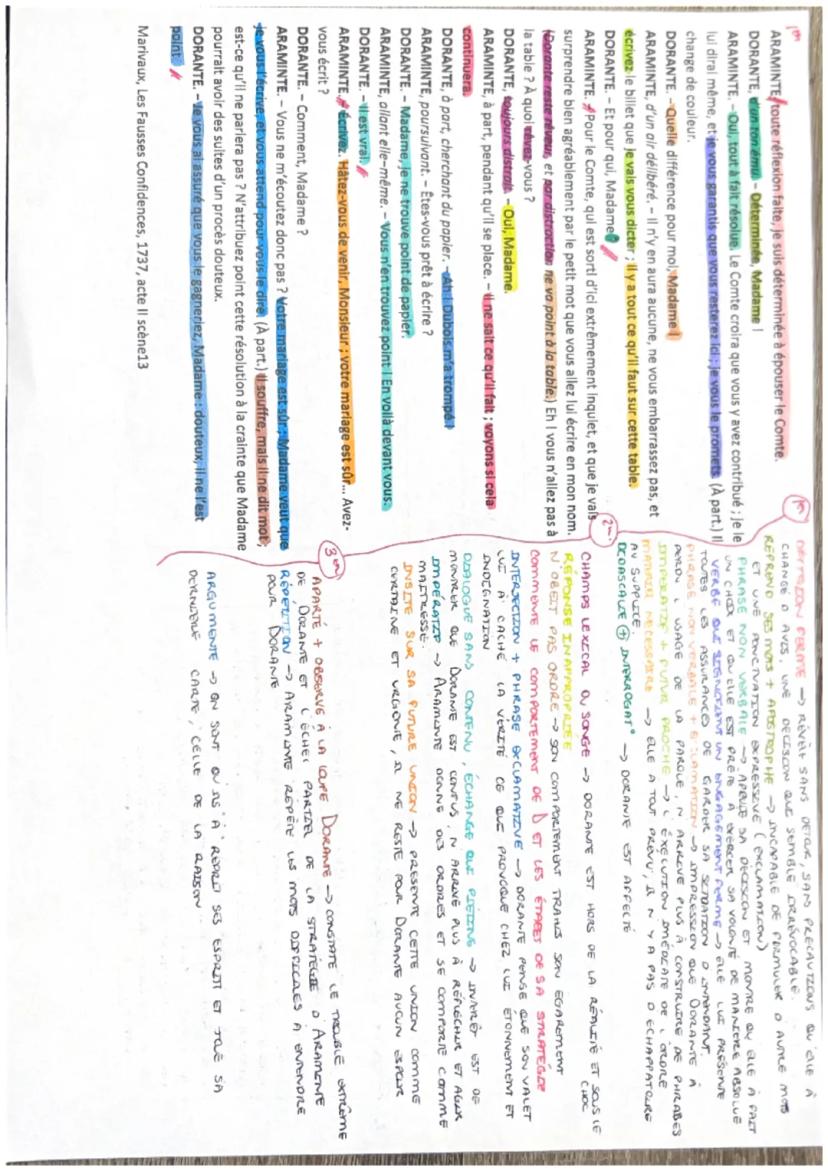 1er
ARAMINTE, toute réflexion faite, je suis déterminée à épouser le Comte.
DORANTE, d'un ton ému. – Déterminée, Madame !
ARAMINTE. – Oui, tout à fait résolue. Le Comte croira que vous y avez contribué ; je le
lui dirai même, et je vous garantis que vous resterez ici ; je vous le promets. (À part.) Il
change de couleur.
DORANTE. – Quelle différence pour moi, Madame !
ARAMINTE, d'un air délibéré. – Il n'y en aura aucune, ne vous embarrassez pas, et
écrivez le billet que je vais vous dicter ; il y a tout ce qu'il faut sur cette table.
DORANTE. – Et pour qui, Madame ?
ARAMINTE. – Pour le Comte, qui est sorti d'ici extrêmement inquiet, et que je vais
surprendre bien agréablement par le petit mot que vous allez lui écrire en mon nom.
(Dorante reste rêveur, et par distraction ne va point à la table.) Eh ! vous n'allez pas à
la table ? À quoi rêvez-vous ?
DORANTE, toujours distrait. – Oui, Madame.
ARAMINTE, à part, pendant qu'il se place. – Il ne sait ce qu'il fait ; voyons si cela
continuera.
DORANTE, à part, cherchant du papier. – Ah ! Dubois m'a trompé !
ARAMINTE, poursuivant. – Êtes-vous prêt à écrire ?
DORANTE. – Madame, je ne trouve point de papier.
ARAMINTE, allant elle-même. – Vous n'en trouvez point ! En voilà devant vous.
DORANTE. – Il est vrai.
ARAMINTE. – Écrivez. Hâtez-vous de venir, Monsieur ; votre mariage est sûr... Avez-
vous écrit ?
DORANTE. – Comment, Madame ?
ARAMINTE. – Vous ne m'écoutez donc pas ? Votre mariage est sûr ; Madame veut que
je vous l'écrive, et vous attend pour vous le dire. (À part.) Il souffre, mais il ne dit mot ;
est-ce qu'il ne parlera pas ? N'attribuez point cette résolution à la crainte que Madame
pourrait avoir des suites d'un procès douteux.
DORANTE. – Je vous ai assuré que vous le gagneriez, Madame : douteux, il ne l'est
point.
Marivaux, Les Fausses Confidences, 1737, acte II scène13
NÉGATION FERME → RÉVÈLE SANS DETOUR, SANS PRECAUTIONS QU'ELLE A
CHANGÉ D AVIS, UNE DECISION QUE SEMBLE IRRÉVOCABLE.
REPREND SES MOTS + APOSTROPHE → INCAPABLE DE FORMULER D AUTRE MOTS
ET UNE PONCTUATION EXPRESSIVE (EXCLAMATION)
PHRASE NON VERBALE → APPUIE SA DÉCISION ET MONTRE QU ELLE A FAIT
UN CHOIX ET QU ELLE EST PRÊTE A EXERCER SA VOLONTÉ DE MANIÈRE ABSOLUE
VERBE QUI SIGNIFIENT UN ENGAGEMENT FERME → ELLE LUI PRÉSENTE
TOUTES LES ASSURANCES DE GARDER SA SITUATION D INTENDANT
PHRASE NON VERBALE + EXCLAMATION → IMPRESSION QUE DORANTE A
PERDU L USAGE DE LA PAROLE, N ARRIVE PLUS À CONSTRUIRE DE PHRASES
IMPERATIF + FUTUR PROCHE → L ÉXÉCUTION IMÉDIATE DE L ORDRE
MATERIEL NECESSAIRE → ELLE A TOUT PRÉVU, IL N Y A PAS D ECHAPPATOIRE
AU SUPPLICE.
DIDASCALIE + INTERROGAT° → DORANTE EST AFFECTÉ
2em
CHAMPS LEXICAL DU SONGE → DORANTE EST HORS DE LA RÉALITÉ ET SOUS LE
CHOC
RÉPONSE INAPPROPRIÉE
N OBEIT PAS ORDRE → SON COMPORTEMENT TRAHIS SON EGAREMENT
COMMENTE LE COMPORTEMENT DE D ET LES ÉTAPES DE SA STRATÉGIE
INTERJECTION + PHRASE EXCLAMATIVE → DORANTE PENSE QUE SON VALET
LUI À CACHÉ LA VÉRITÉ CE QUE PROVOQUE CHEZ LUI ÉTONNEMENT ET
INDIGNATION
DIALOGUE SANS CONTENU, ÉCHANGE QUI PIÉTINE → INTÉRÊT EST DE
MONTRER QUE DORANTE EST CONFUS, N ARRIVE PLUS À RÉFLÉCHIR ET AGIR
IMPÉRATIF → ARAMINTE DONNE DES ORDRES ET SE COMPORTE COMME
MAITRESSE.
INSISTE SUR SA FUTURE UNION → PRÉSENTE CETTE UNION COMME
CERTAINE ET URGENTE, IL NE RESTE POUR DORANTE AUCUN ESPOIR
3em
APARTÉ + OBSERVE À LA LOUPE DORANTE → CONSTATE LE TROUBLE EXTRÊME
DE DORANTE ET L ÉCHEC PARTIEL DE LA STRATÉGIE D ARAMINTE
RÉPÉTITION → ARAMINTE RÉPÈTE LES MOTS DIFFICILES À ENTENDRE
POUR DORANTE
ARGUMENTE → ON SENT QU IL A REPRIT SES ESPRIT ET JOUE SA
DERNIÈRE CARTE, CELLE DE LA RAISON